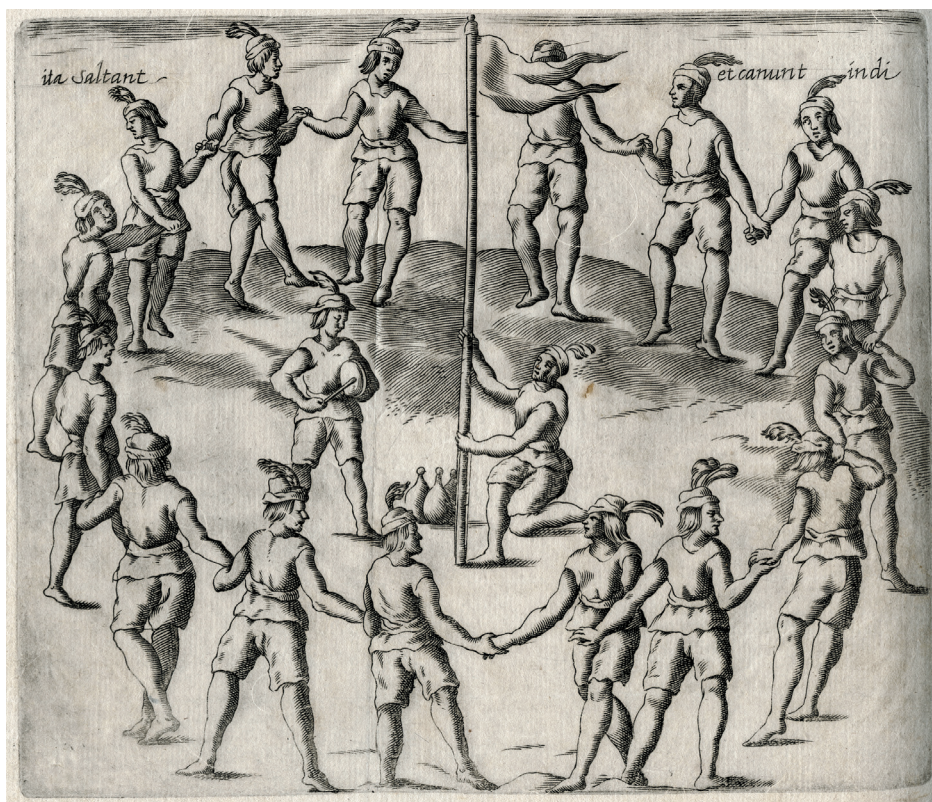 ita saltant et canunt indi